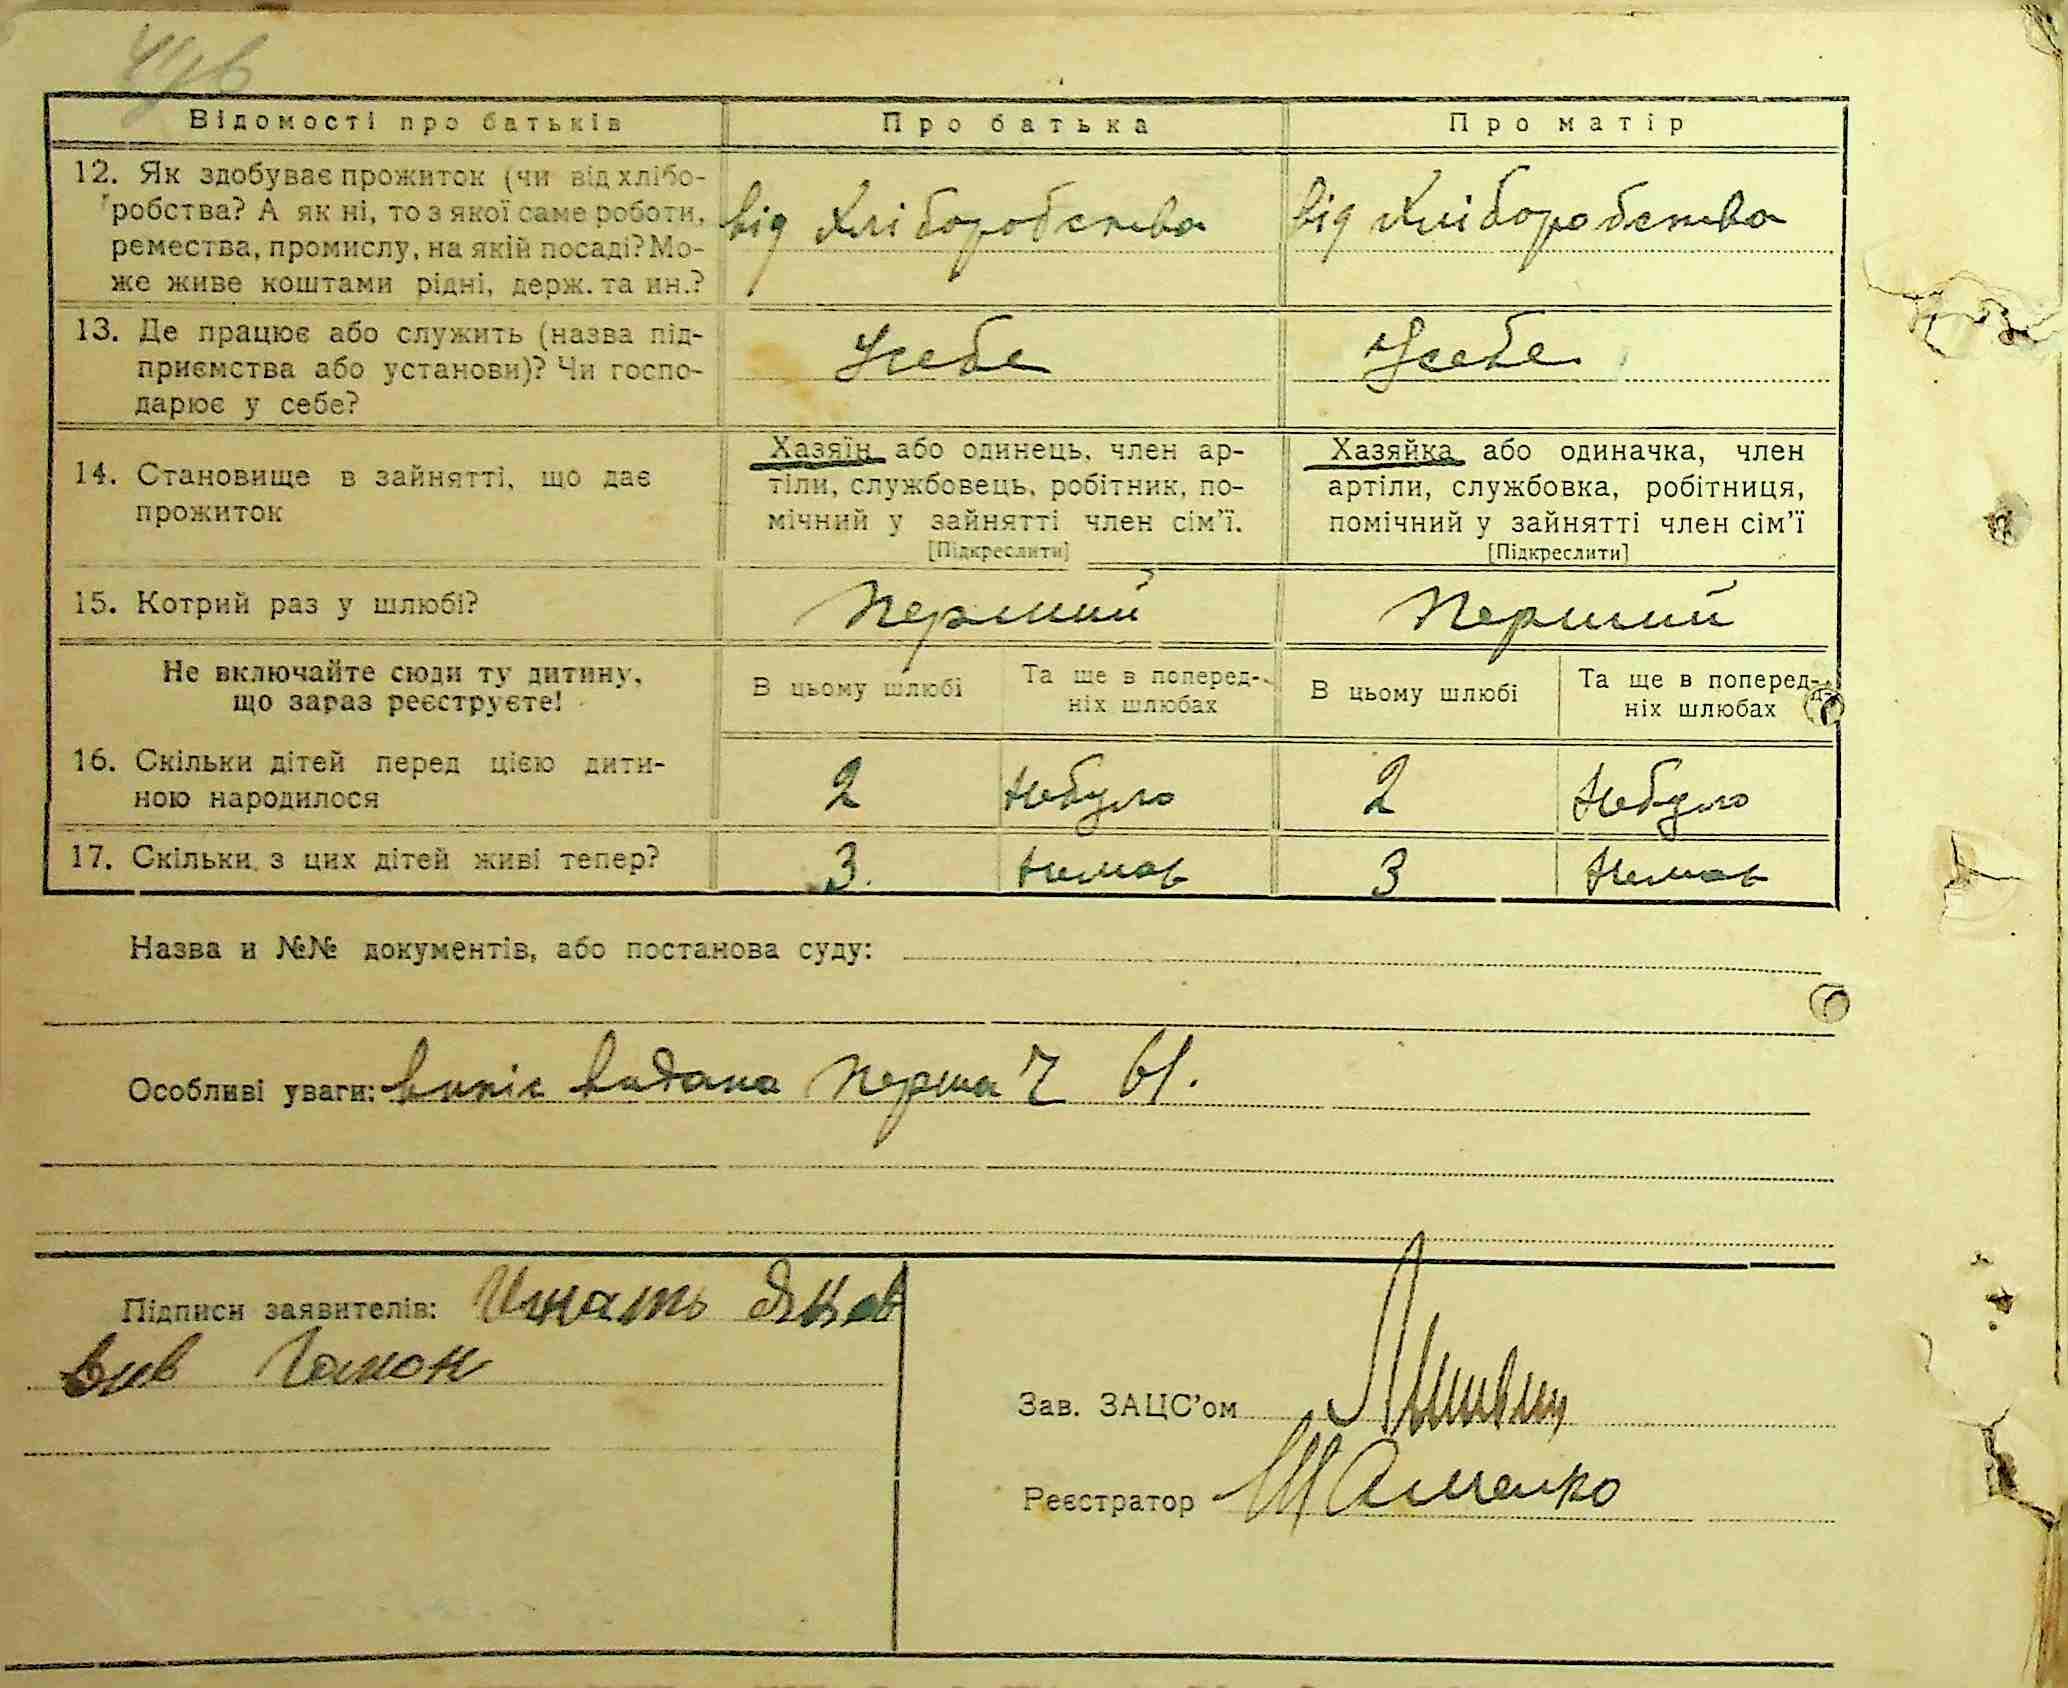 Відомості про батьків Про батька Про матір
12. Як здобуває прожиток (чи від хлібо-
робства? А як ні, то з якої саме роботи,
ремества, промислу, на якій посаді? Мо-
же живе коштами рідні, держ. та ин.?
від хліборобства від хліборобства
13. Де працює або служить (назва під-
приємства або установи)? Чи госпо-
дарює у себе?
Усебе Усебе
14. Становище в зайнятті, що дає
прожиток
Хазяїн або одинець, член ар-
тіли, службовець, робітник, по-
мічний у зайнятті член сім'ї.
[Підкреслити]
Хазяйка або одиначка, член
артіли, службовка, робітниця,
помічний у зайнятті член сім'ї
[Підкреслити]
15. Котрий раз у шлюбі? Перший Перший
Не включайте сюди ту дитину,
що зараз реєструєте!
В цьому шлюбі
Та ще в поперед-
ніх шлюбах
В цьому шлюбі
Та ще в поперед-
ніх шлюбах
16. Скільки дітей перед цією дити-
ною народилося
2 небуло 2 небуло
17. Скільки з цих дітей живі тепер? 3 немає 3 немає
Назва и №№ документів, або постанова суду:
Особливі уваги: випис видана перша 61.
Підписи заявителів: Игнать Яков
Гамон
Зав. ЗАЦС'ом
Реєстратор